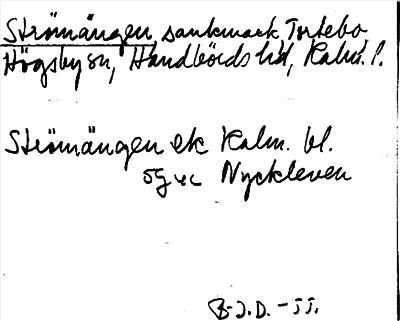 Strömängen, sankmark, Tortebo,
Högsby sn, Handbörds hd, Kalm. l.
Strömängen ek Kalm. bl.
5g uc Nyckleven
B-J.D. -55.